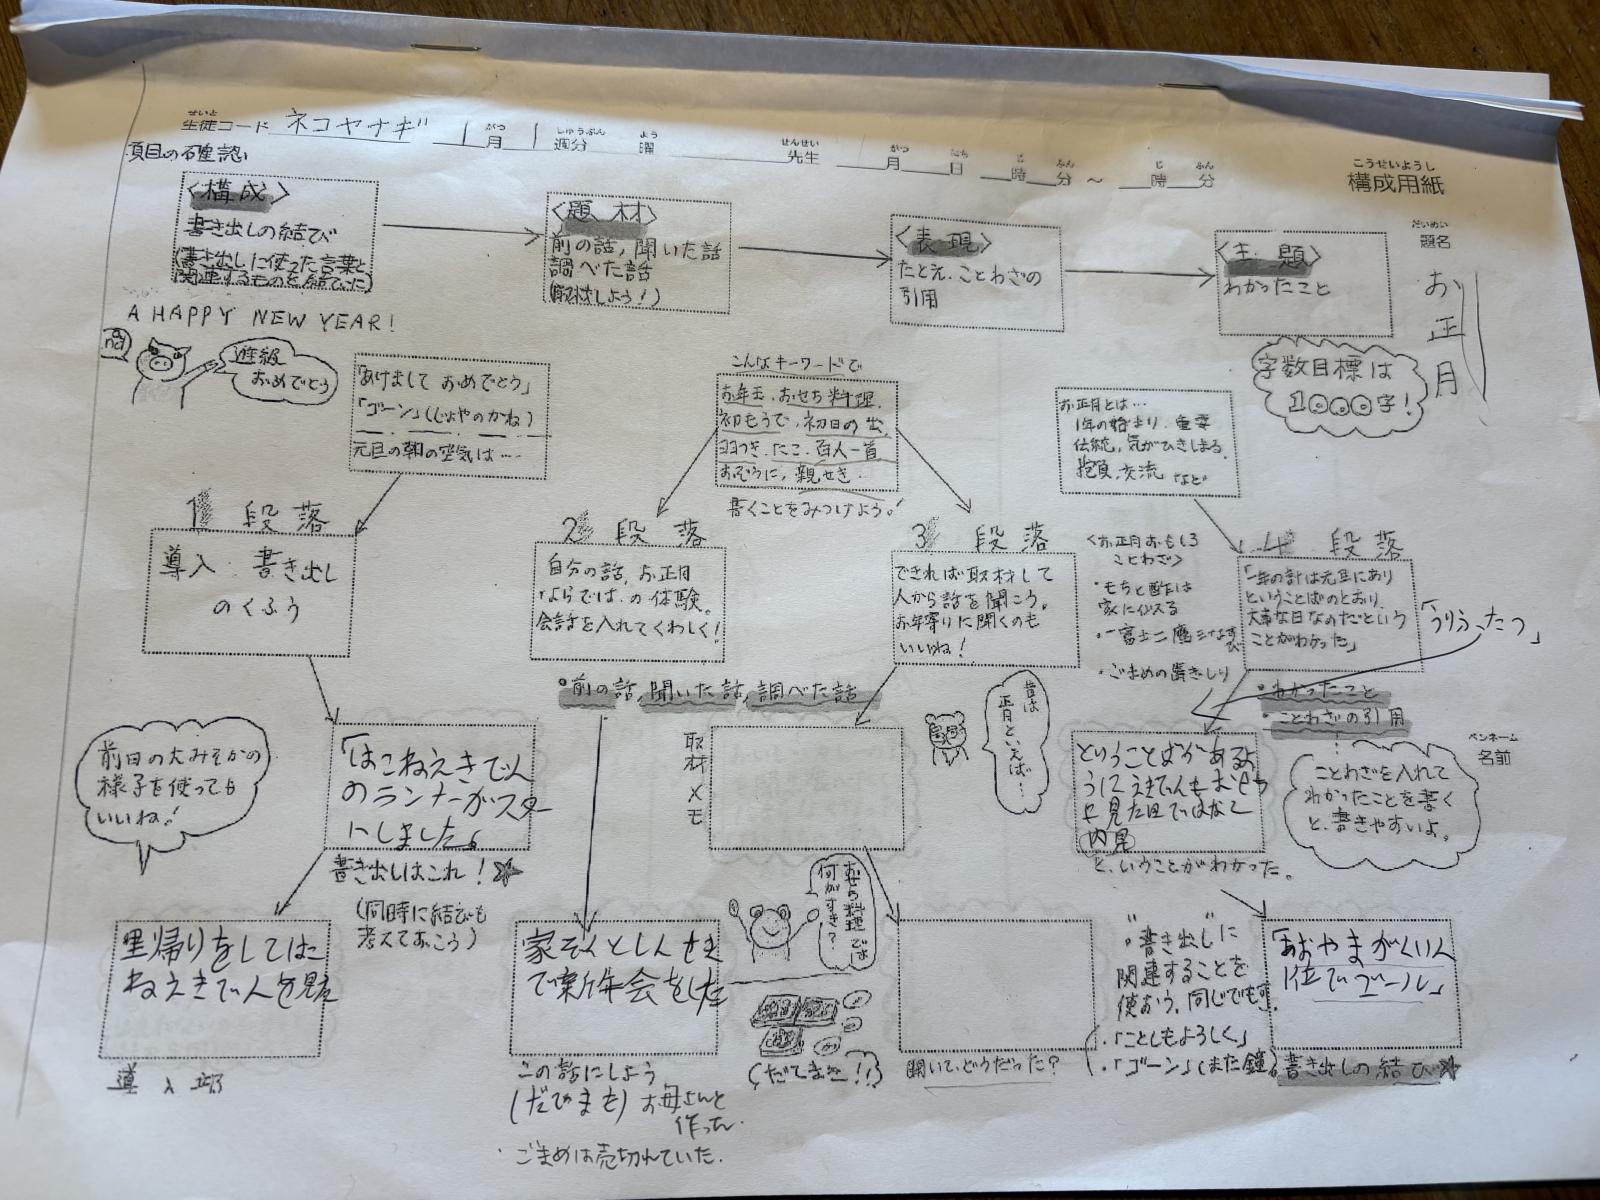 生徒コード ネコヤナギ 1月 1週分 曜 先生 月 日 時 分 ～ 時 分
せいと がつ しゅうぶん よう せんせい がつ にち じ ふん じ ふん
こうせいようし
構成用紙
項目の確認
だいめい
題名
お正月
〈構成〉
書き出しの結び
(書き出しに使った言葉と
関連するものを結びに)
〈題材〉
前の話，聞いた話
調べた話
(取材しよう！)
〈表現〉
たとえ．ことわざの
引用
〈主題〉
わかったこと
A HAPPY NEW YEAR!
進級
おめでとう
「あけまして おめでとう」
「ゴーン」(じょやのかね)
元旦の朝の空気は…
こんなキーワードで
お年玉．おせち料理．
初もうで．初日の出．
羽つき．たこ．百人一首．
おぞうに，親せき．
書くことをみつけよう。
お正月とは…
1年の始まり．重要
伝統，気がひきしまる，
抱負，交流 など
字数目標は
1000字！
1段落
導入．書き出し
のくふう
2段落
自分の話，お正月
ならでは．の体験。
会話を入れてくわしく！
3段落
できれば取材して
人から話を聞こう。
お年寄りに聞くのも
いいね！
〈お正月おもしろ
ことわざ〉
・もちと酢は
家に似る
・一富士二鷹三なすび
・ごまめの歯ぎしり
4段落
「一年の計は元旦にあり
ということばのとおり，
大事な日なのだという
ことがわかった」
「うりふたつ」
・前の話，聞いた話，調べた話
・わかったこと
・ことわざの引用
前日の大みそかの
様子を使っても
いいね！
「はこねえきでん
のランナーがスター
にしました。
書き出しはこれ！
(同時に結びも
考えておこう)
取材メモ
昔は
正月といえば…
ということばがあるよ
うにえきでんもおせち
も見た目ではなく
内見
と、いうことがわかった。
ペンネーム
名前
ことわざを入れて
わかったことを書く
と、書きやすいよ。
里帰りをしてはこ
ねえきでんを見た
導入部
家ぞくとしんせき
で新年会をした
この話にしよう
(だてまき) お母さんと
作った．
・ごまめは売切れていた．
おせち料理では
何がすき？
(だてまき！！)
聞いて、どうだった？
。"書き出し"に
関連することを
使おう，同じでも可．
・「ことしもよろしく」
・「ゴーン」(また鐘)
「あおやまがくいん
1位でゴール」
書き出しの結び